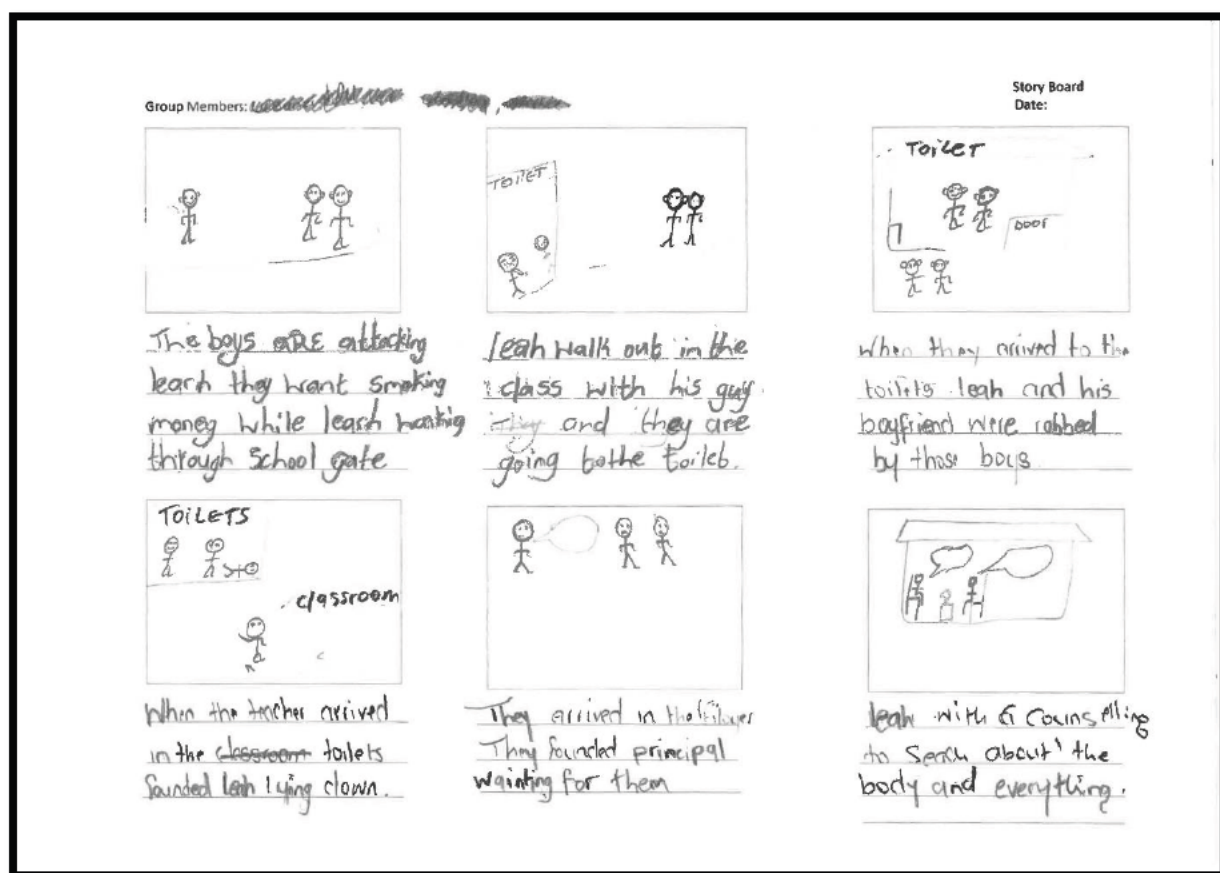 Group Members:
Story Board
Date:
TOILET
TOILET
DOOF
The boys ARE attacking
learh they want smoking
money while learh
through school gate
leah walk out in the
class with his guy
They and they are
going tothe toilet.
When they arrived to the
toilets leah and his
boyfriend were robbed
by those boys
TOILETS
classroom
When the teacher arrived
in the classroom toilets
founded leah lying down.
They arrived in the
They founded principal
wainting for them
leah with a
to about the
body and everything.